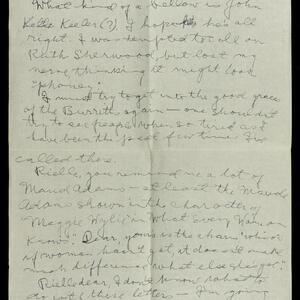 What kind of a fellow is John
Kelle Keeler(?). I hope he's all
right. I was tempted to call on
Ruth Sherwood, but lost my
nerve, thinking it might look
"phoney."
I must try to get into the good graces
of the Burretts again — one shouldn't
try to see people when so tired as I
have been the past few times I've
called there.
Rielle, you remind me a lot of
Maud Adams — at least the Maude
Adams shown in the character of
"Maggie Wylie" in "What Every Woman
Knows." Dear, yours is the charm "which
if woman hasn't get, it does not make
much difference what else she has."
Rielle dear, I don't know what to
do with these letters — I'm going